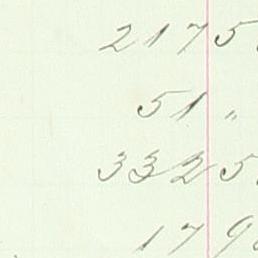 217 5
51 "
332 5
17 9